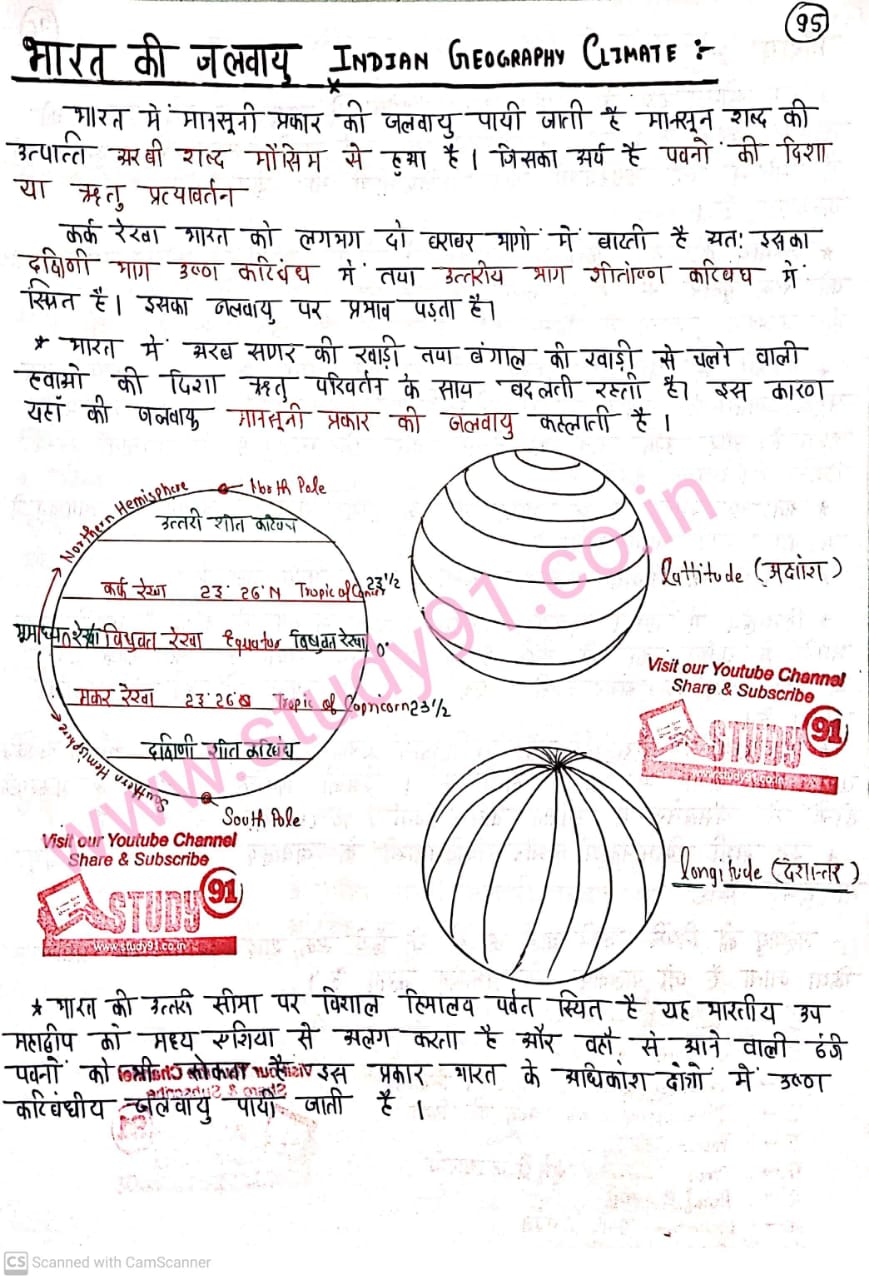 95
भारत की जलवायु INDIAN GEOGRAPHY CLIMATE :-
भारत में मानसूनी प्रकार की जलवायु पायी जाती है मानसून शब्द की
उत्पात्ति अरबी शब्द मौसिम से हुआ है। जिसका अर्थ है पवनों की दिशा
या ऋतु प्रत्यावर्तन
कर्क रेखा भारत को लगभग दो बराबर भागों में बाटती है अत: इसका
दक्षिणी भाग उष्ण कटिबंध में तथा उत्तरीय भाग शीतोष्ण कटिबंध में
स्थित है। इसका जलवायु पर प्रभाव पड़ता है।
* भारत में अरब सागर की खाड़ी तथा बंगाल की खाड़ी से चलने वाली
हवाओ की दिशा ऋतु परिवर्तन के साथ बदलती रहती है। इस कारण
यहाँ की जलवायु मानसूनी प्रकार की जलवायु कहलाती है।
North Pole
Northern Hemisphere
उत्तरी शीत कटिबंध
कर्क रेखा 23° 26' N Tropic of Cancer 23 1/2
विषुवत रेखा Equator विषुवत रेखा 0°
मकर रेखा 23° 26' S Tropic of Capricorn 23 1/2
दक्षिणी शीत कटिबंध
Southern Hemisphere
South Pole
lattitude (अक्षांश)
Visit our Youtube Channel
Share & Subscribe
STUDY 91
www.study91.co.in
longitude (देशान्तर)
Visit our Youtube Channel
Share & Subscribe
STUDY 91
www.study91.co.in
www.study91.co.in
* भारत की उत्तरी सीमा पर विशाल हिमालय पर्वत स्थित है यह भारतीय उप
महाद्वीप को मध्य एशिया से अलग करता है और वहाँ से आने वाली ठंडी
पवनों को भी रोकता है इस प्रकार भारत के अधिकांश क्षेत्रों में उष्ण
कटिबंधीय जलवायु पायी जाती है।
CS Scanned with CamScanner